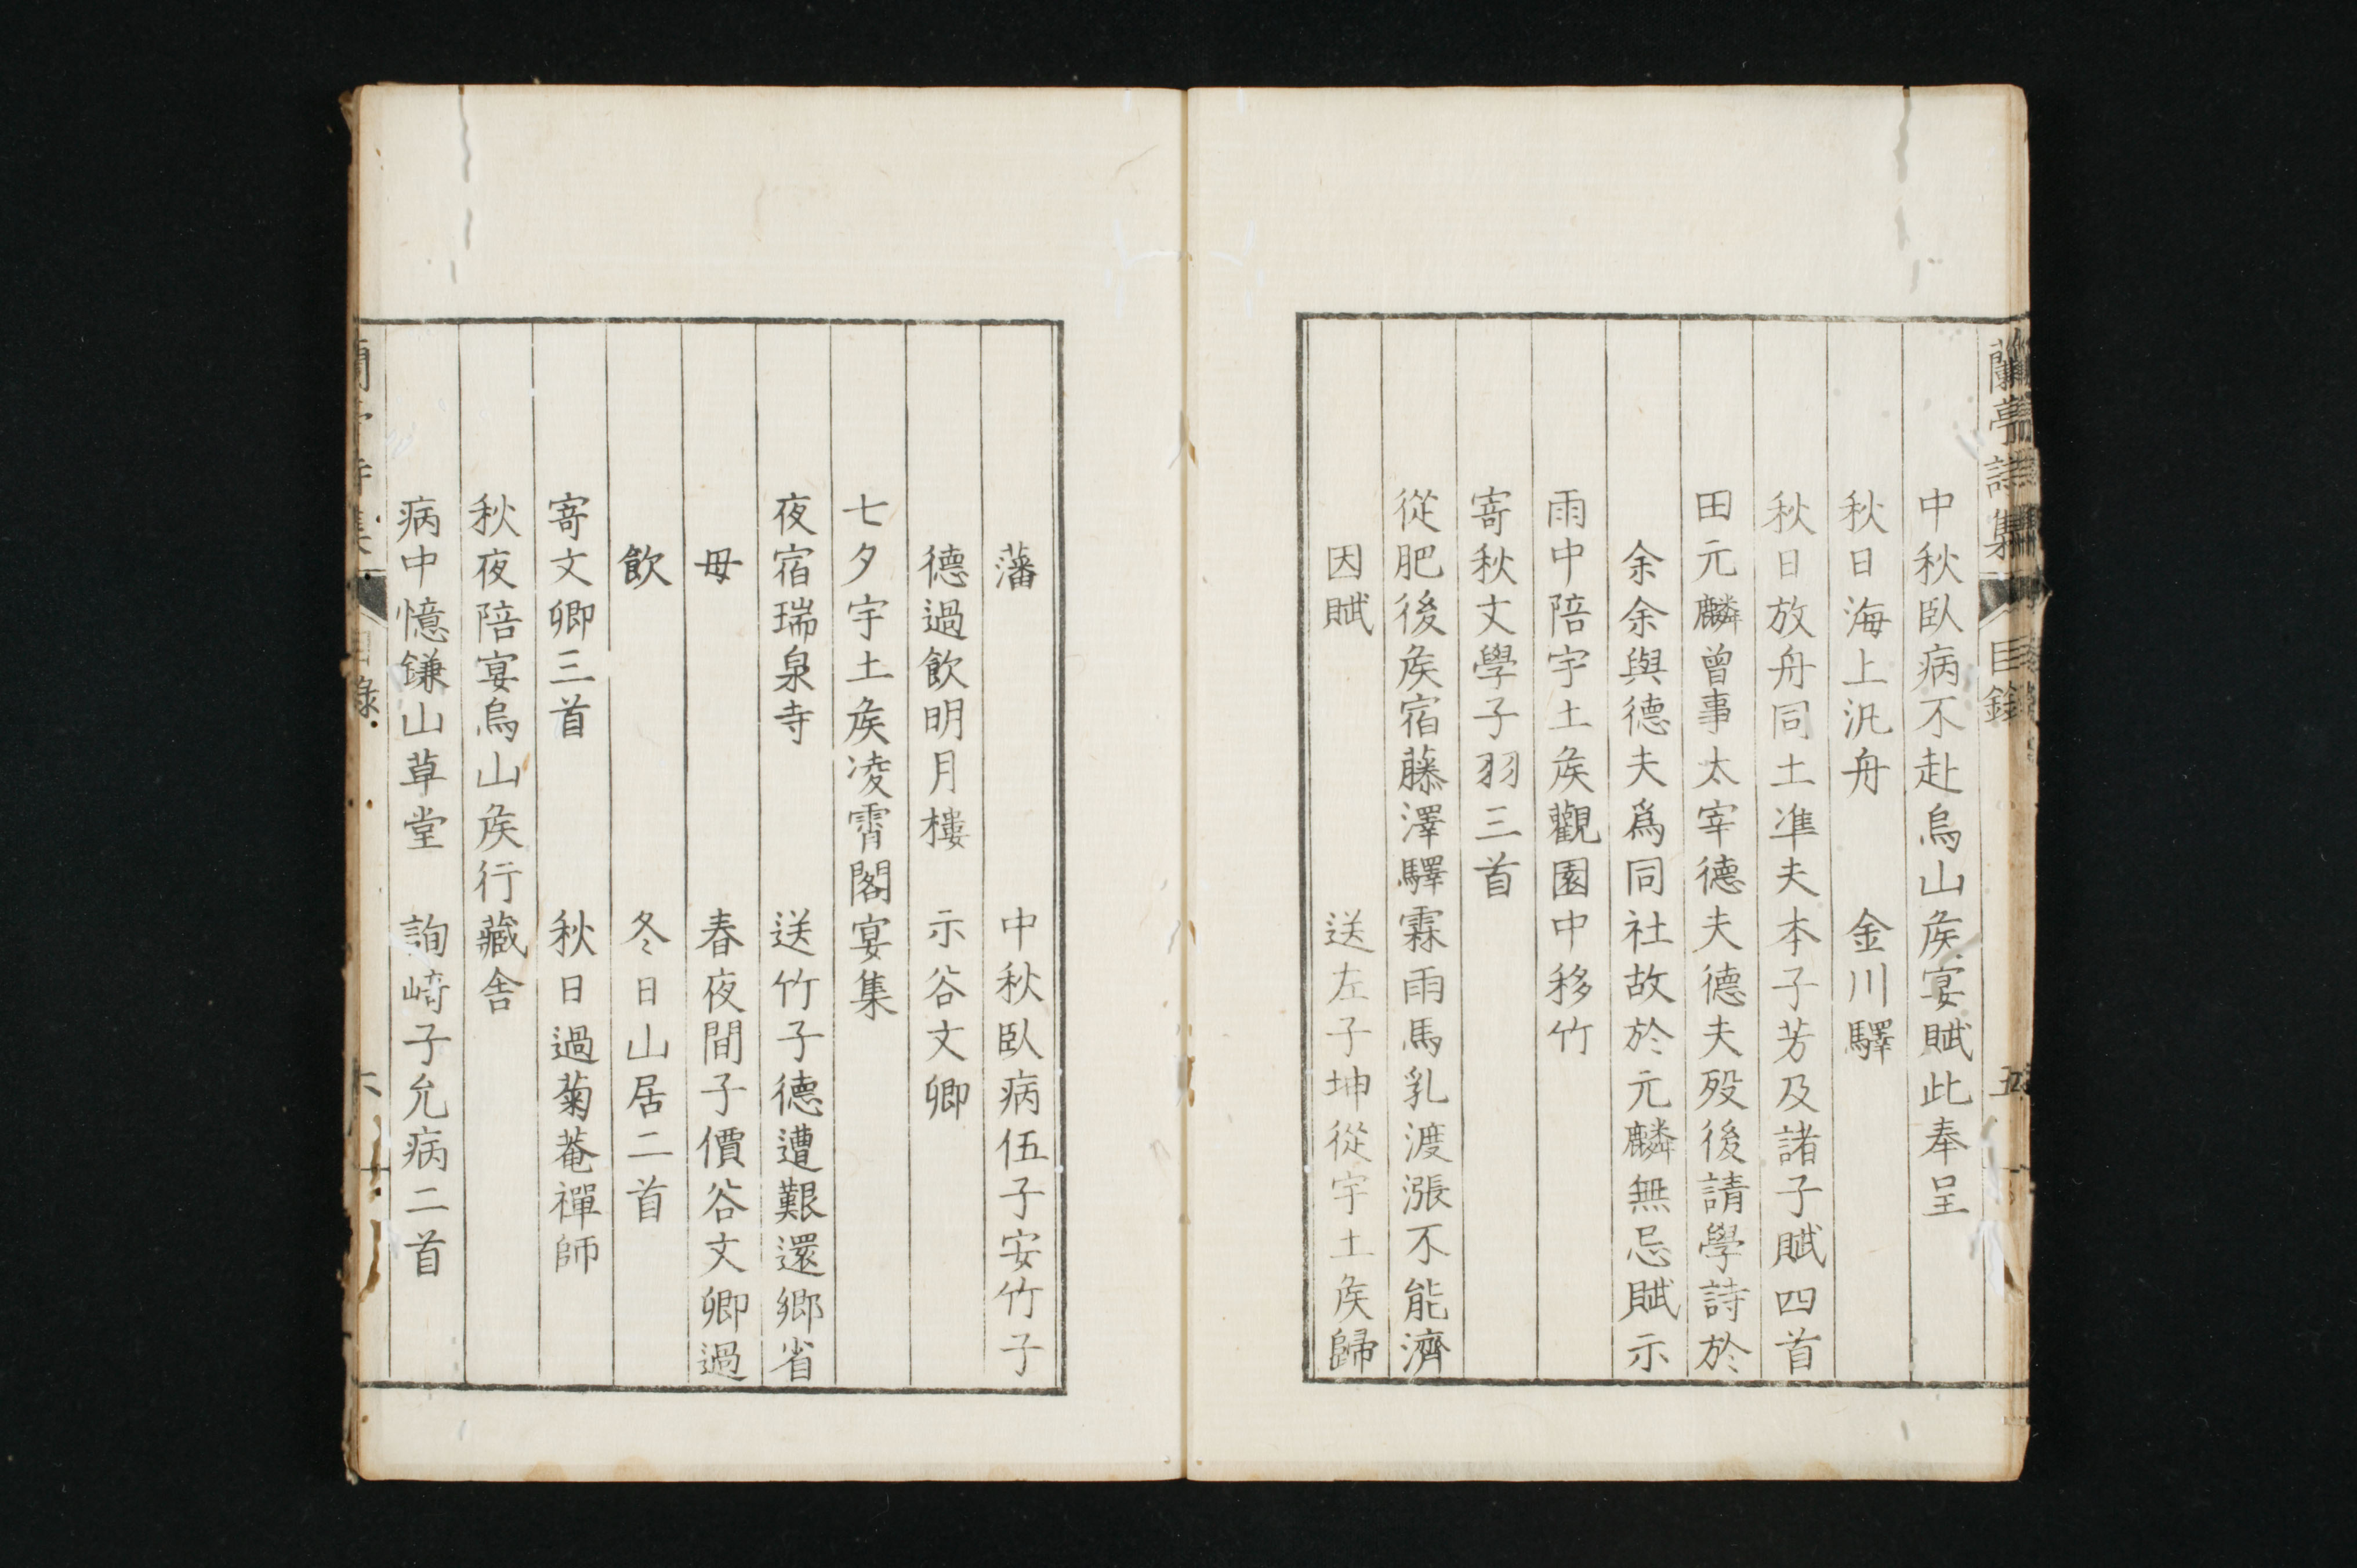 蘭亭詩集
目錄
五
中秋臥病不赴烏山矦宴賦此奉呈
秋日海上汎舟 金川驛
秋日放舟同土準夫本子芳及諸子賦四首
田元麟曾事太宰德夫德夫歿後請學詩於
余余與德夫爲同社故於元麟無忌賦示
雨中陪宇土矦觀園中移竹
寄秋文學子羽三首
從肥後矦宿藤澤驛霖雨馬乳渡漲不能濟
因賦 送左子坤從宇土矦歸
藩 中秋臥病伍子安竹子
德過飮明月樓 示谷文卿
七夕宇土矦凌霄閣宴集
夜宿瑞泉寺 送竹子德遭艱還鄉省
母 春夜間子價谷文卿過
飮 冬日山居二首
寄文卿三首 秋日過菊菴禪師
秋夜陪宴烏山矦行藏舍
病中憶鎌山草堂 詢崎子允病二首